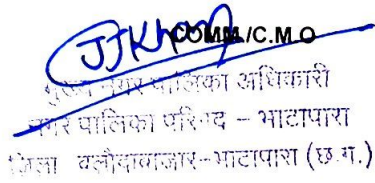 JJKhan
COMM./C.M.O
मुख्य नगर पालिका अधिकारी
नगर पालिका परिषद – भाटापारा
जिला बलौदाबाजार-भाटापारा (छ.ग.)